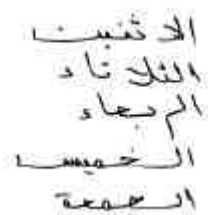 الاثنين
الثلاثاء
الاربعاء
الخميس
الجمعة